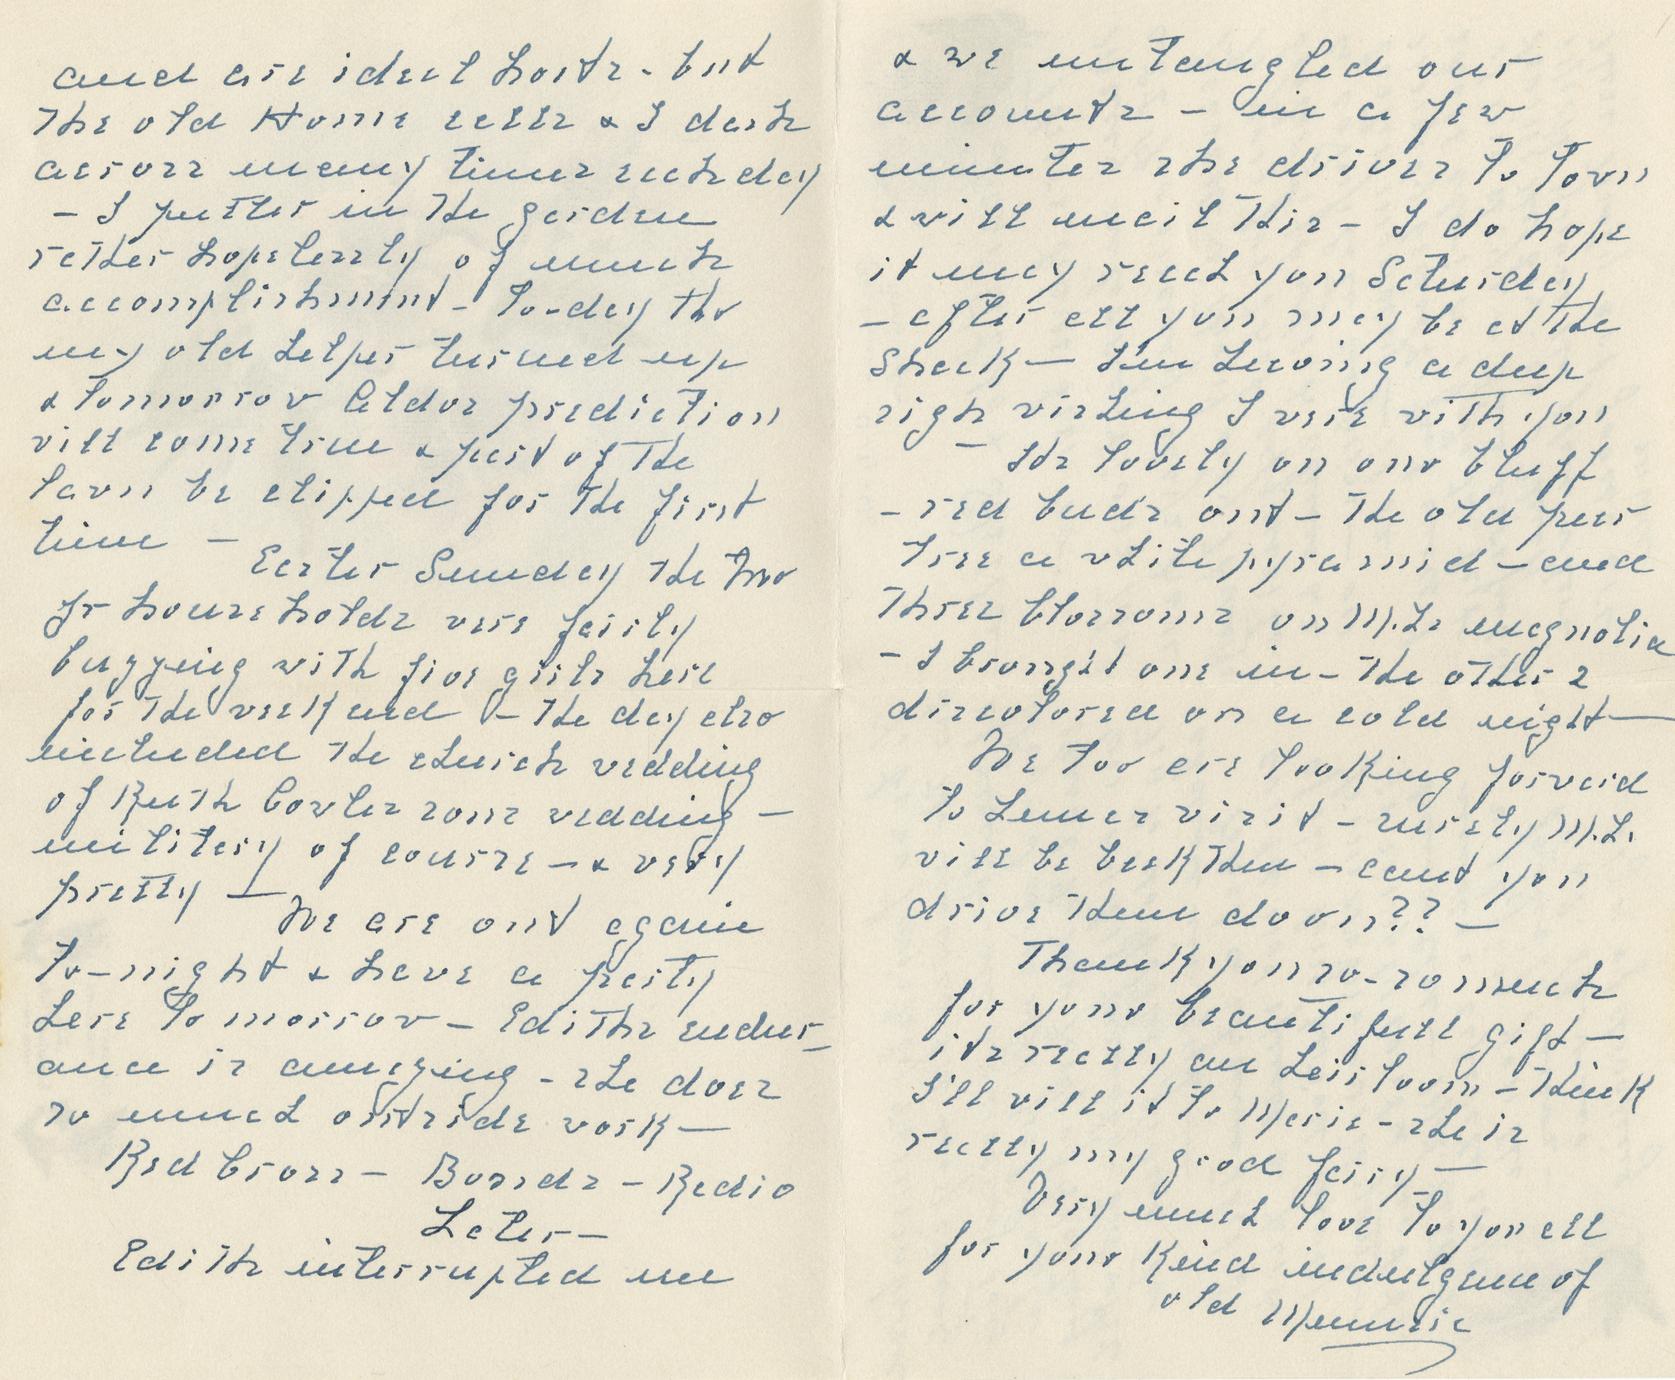 and are ideal hosts - but
the old Home calls & I dash
across many times each day
- I putter in the garden
rather hopelessly of much
accomplishment - To-day tho
my old helper turned up
& tomorrow Aldos prediction
will come true & part of the
lawn be clipped for the first
time -
Easter Sunday the two
Jr households were fairly
buzzing with five girls here
for the week end - The day also
included the church wedding
of Ruth Cowles sons wedding -
military of course - & very
pretty -
We are out again
to-night & have a party
here tomorrow - Ediths endur-
ance is amazing - she does
so much outside work -
Red Cross - Bonds - Radio
Later -
Edith interrupted me
& we untangled our
accounts - in a few
minutes she drives to town
& will mail this - I do hope
it may reach you Saturday
- after all you may be at the
Shack - Im heaving a deep
sigh wishing I were with you
- Its lovely on our bluff
- red buds out - the old pear
tree a white pyramid - and
three blossoms on M.L's magnolia
- I brought one in - the other 2
discolored on a cold night -
We too are looking forward
to visit - surely M.L.
will be back then - cant you
drive them down?? -
Thank you so - so much
for your beautifull gift -
its really an heirloom - think
I'll will it to Marie - she is
really my good fairy -
Very much love to you all
for your kind indulgence of
old